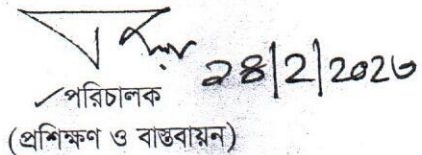 ২৪/2/2026
পরিচালক
(প্রশিক্ষণ ও বাস্তবায়ন)